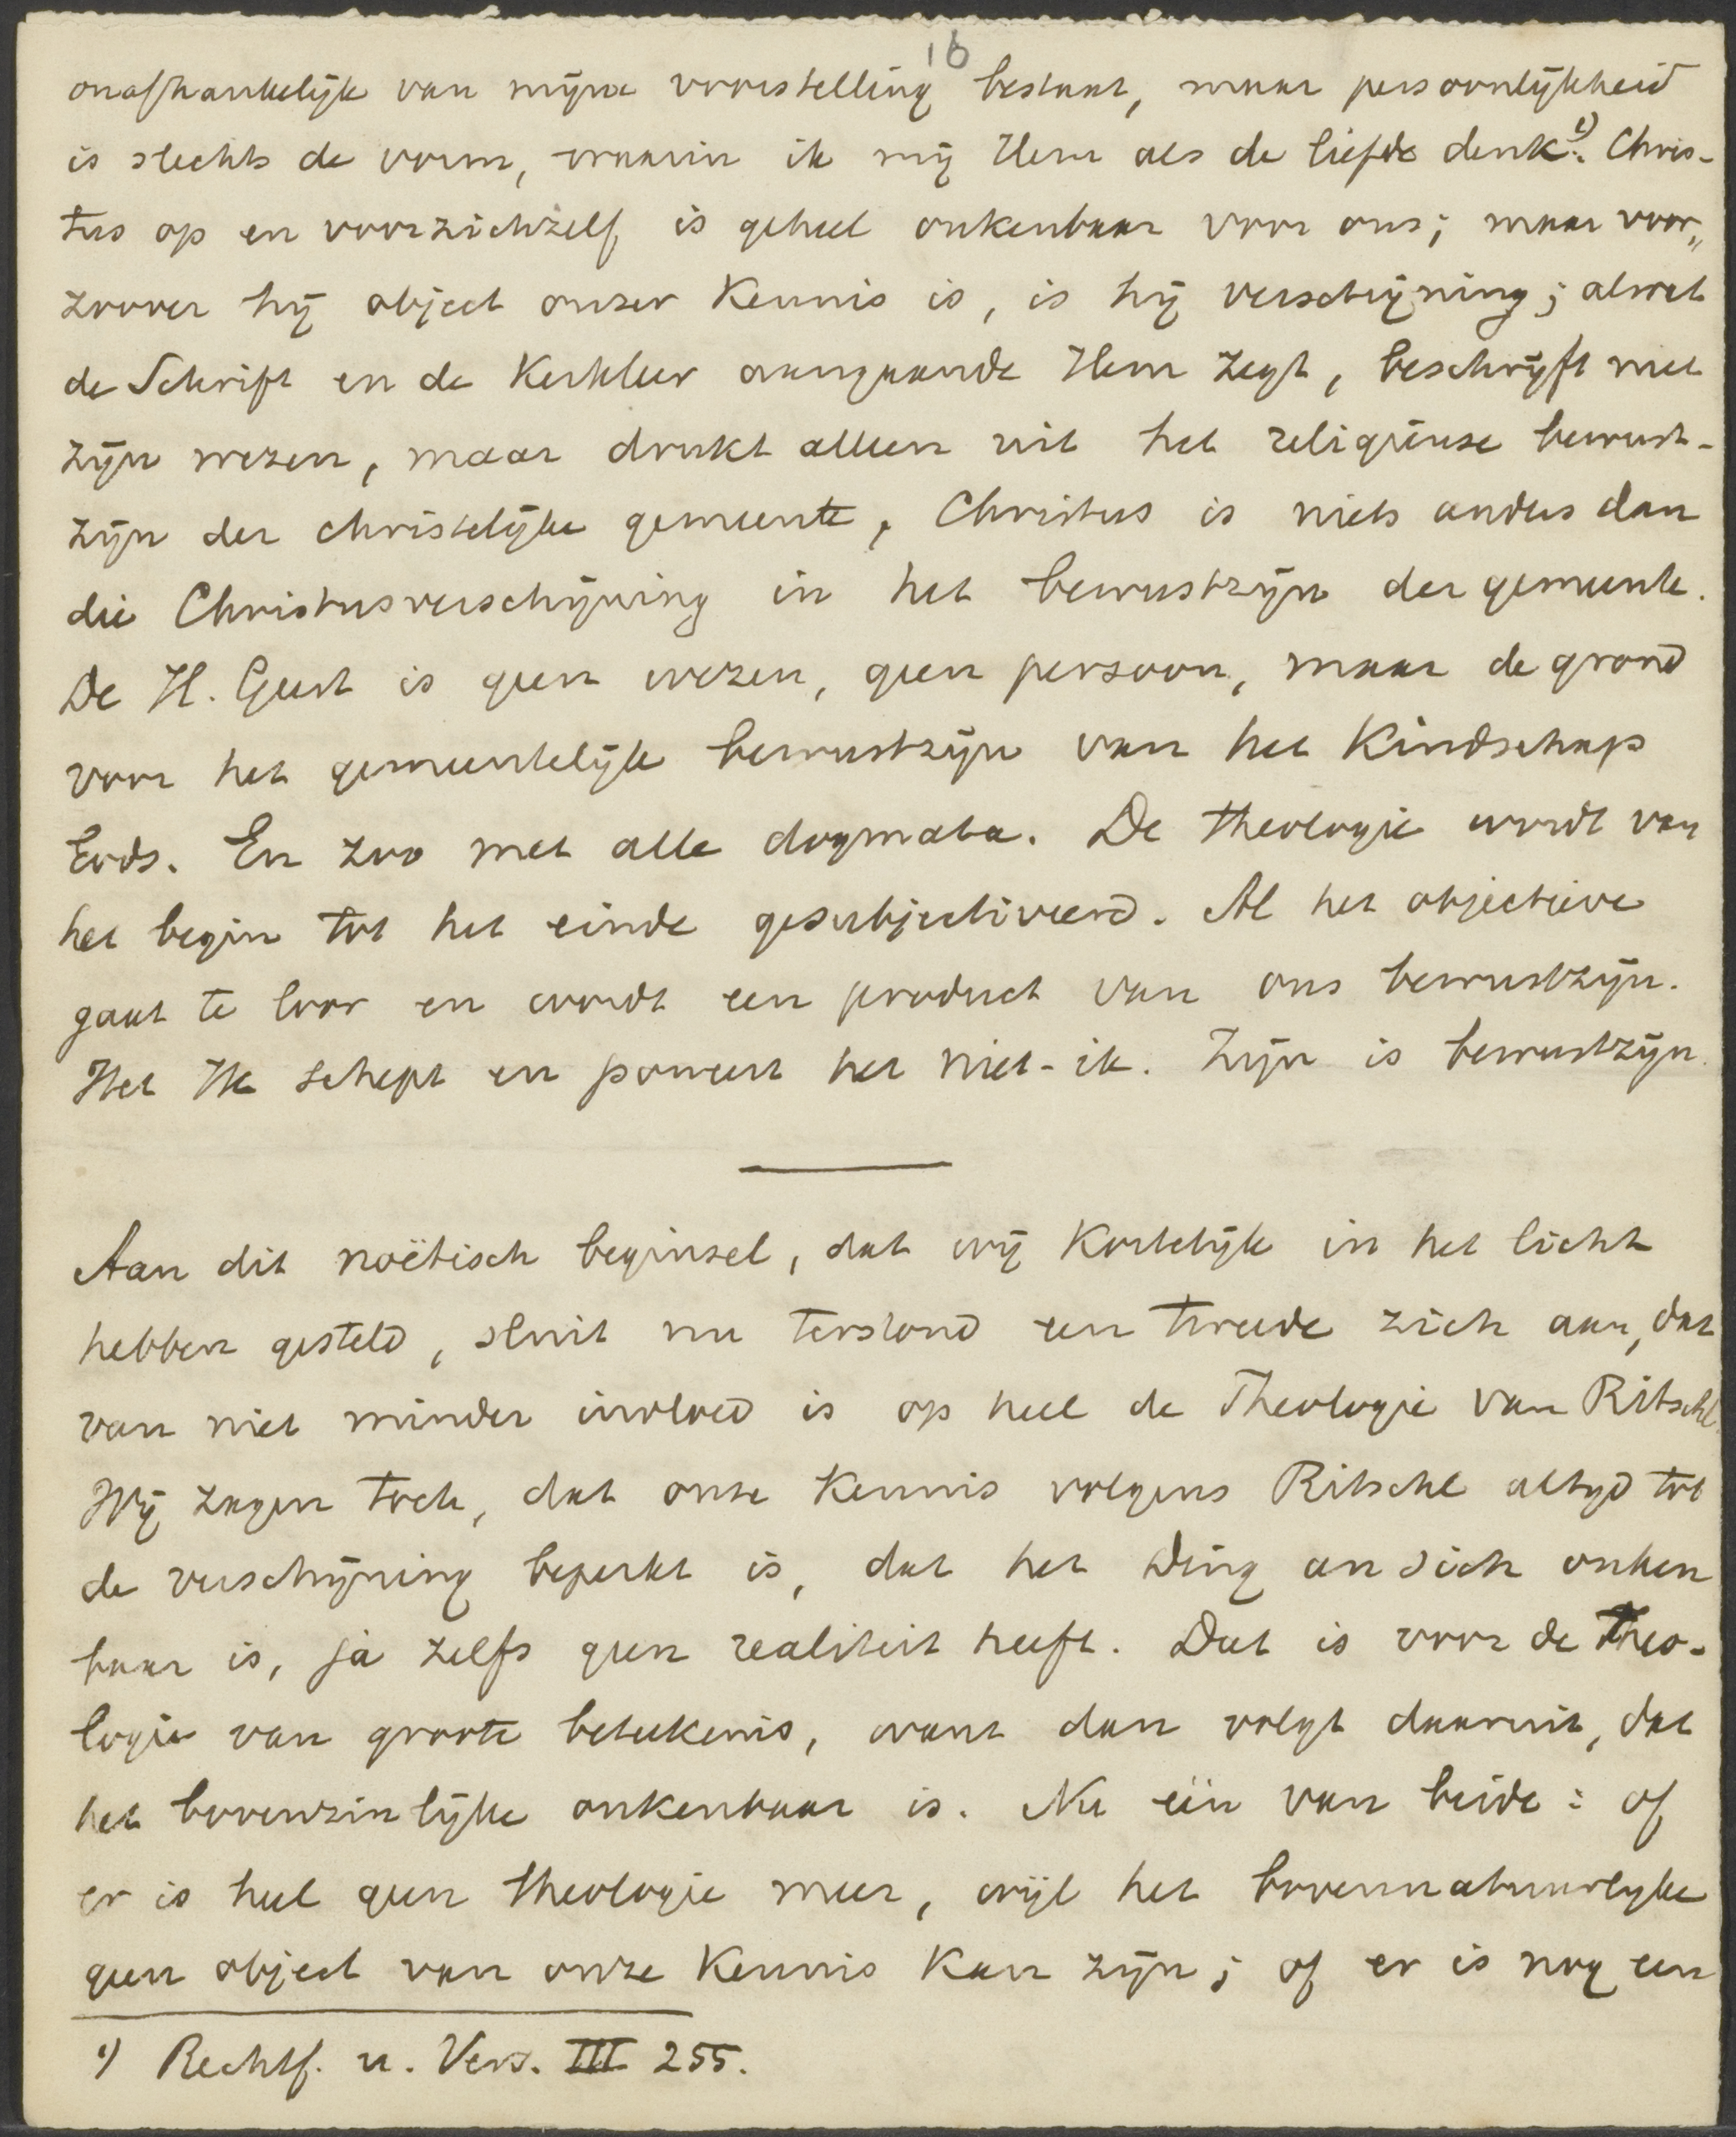 16
onafhankelijk van mijne voorstelling bestaat, maar persoonlijkheid
is slechts de vorm, waarin ik mij Hem als de liefde denk.¹) Chris-
tus op en voor zichzelf is geheel onkenbaar voor ons; maar voor„
zoover hij object onzer kennis is, is hij verschijning; alwat
de Schrift en de Kerkleer aangaande Hem zegt, beschrijft niet
zijn wezen, maar drukt alleen uit het religieuse bewust-
zijn der christelijke gemeente, Christus is niets anders dan
die Christusverschijning in het bewustzijn der gemeente.
De H. Geest is geen wezen, geen persoon, maar de grond
voor het gemeentelijk bewustzijn van het Kindschap
Gods. En zoo met alle dogmata. De theologie wordt van
het begin tot het einde gesubjectiveerd. Al het objectieve
gaat te loor en wordt een product van ons bewustzijn.
Het Ik schept en poneert het niet-ik. Zijn is bewustzijn.
Aan dit noëtisch beginsel, dat wij kortelijk in het licht
hebben gesteld, sluit nu terstond een tweede zich aan, dat
van niet minder invloed is op heel de Theologie van Ritschl.
Wij zagen toch, dat onze kennis volgens Ritschl altijd tot
de verschijning beperkt is, dat het Ding an Sich onken
baar is, ja zelfs geen realiteit heeft. Dat is voor de Theo-
logie van groote beteekenis, want dan volgt daaruit, dat
het bovenzinlijke onkenbaar is. Nu één van beide: of
er is heel geen theologie meer, wijl het bovennatuurlijke
geen object van onze kennis kan zijn; of er is nog een
¹) Rechtf. u. Vers. III 255.